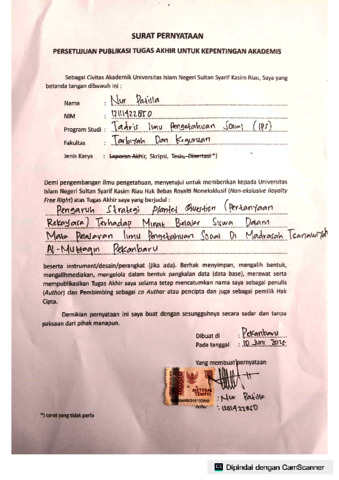 SURAT PERNYATAAN
PERSETUJUAN PUBLIKASI TUGAS AKHIR UNTUK KEPENTINGAN AKADEMIS
Sebagai Civitas Akademik Universitas Islam Negeri Sultan Syarif Kasim Riau, Saya yang
betanda tangan dibawah ini :
Nama : Nur
NIM :
Program Studi : Tadris Ilmu Pengetahuan Sosial (IPS)
Fakultas : Tarbiyah Dan Keguruan
Jenis Karya : Laporan Akhir, Skripsi, Tesis, Disertasi*)
Demi pengembangan ilmu pengetahuan, menyetujui untuk memberikan kepada Universitas
Islam Negeri Sultan Syarif Kasim Riau Hak Bebas Royalti Noneksklusif (Non-ekslusive Royalty
Free Right) atas Tugas Akhir saya yang berjudul :
Pengaruh Strategi Planted Question (Pertanyaan
Rekayasa) Terhadap Minat Belajar Siswa Dalam
Mata Pelajaran Ilmu Pengetahuan Sosial Di Madrasah Tsanawiyah
Al-Muttaqin Pekanbaru
beserta instrument/desain/perangkat (jika ada). Berhak menyimpan, mengalih bentuk,
mengalihmediakan, mengelola dalam bentuk pangkalan data (data base), merawat serta
mempublikasikan Tugas Akhir saya selama tetap mencatumkan nama saya sebagai penulis
(Author) dan Pembimbing sebagai co Author atau pencipta dan juga sebagai pemilik Hak
Cipta.
Demikian pernyataan ini saya buat dengan sesungguhnya secara sadar dan tanpa
paksaan dari pihak manapun.
Dibuat di : Pekanbaru
Pada tanggal : 10 Juni
Yang membuat pernyataan
METERAI
TEMPEL
: Nur
*) coret yang tidak perlu
CS Dipindai dengan CamScanner